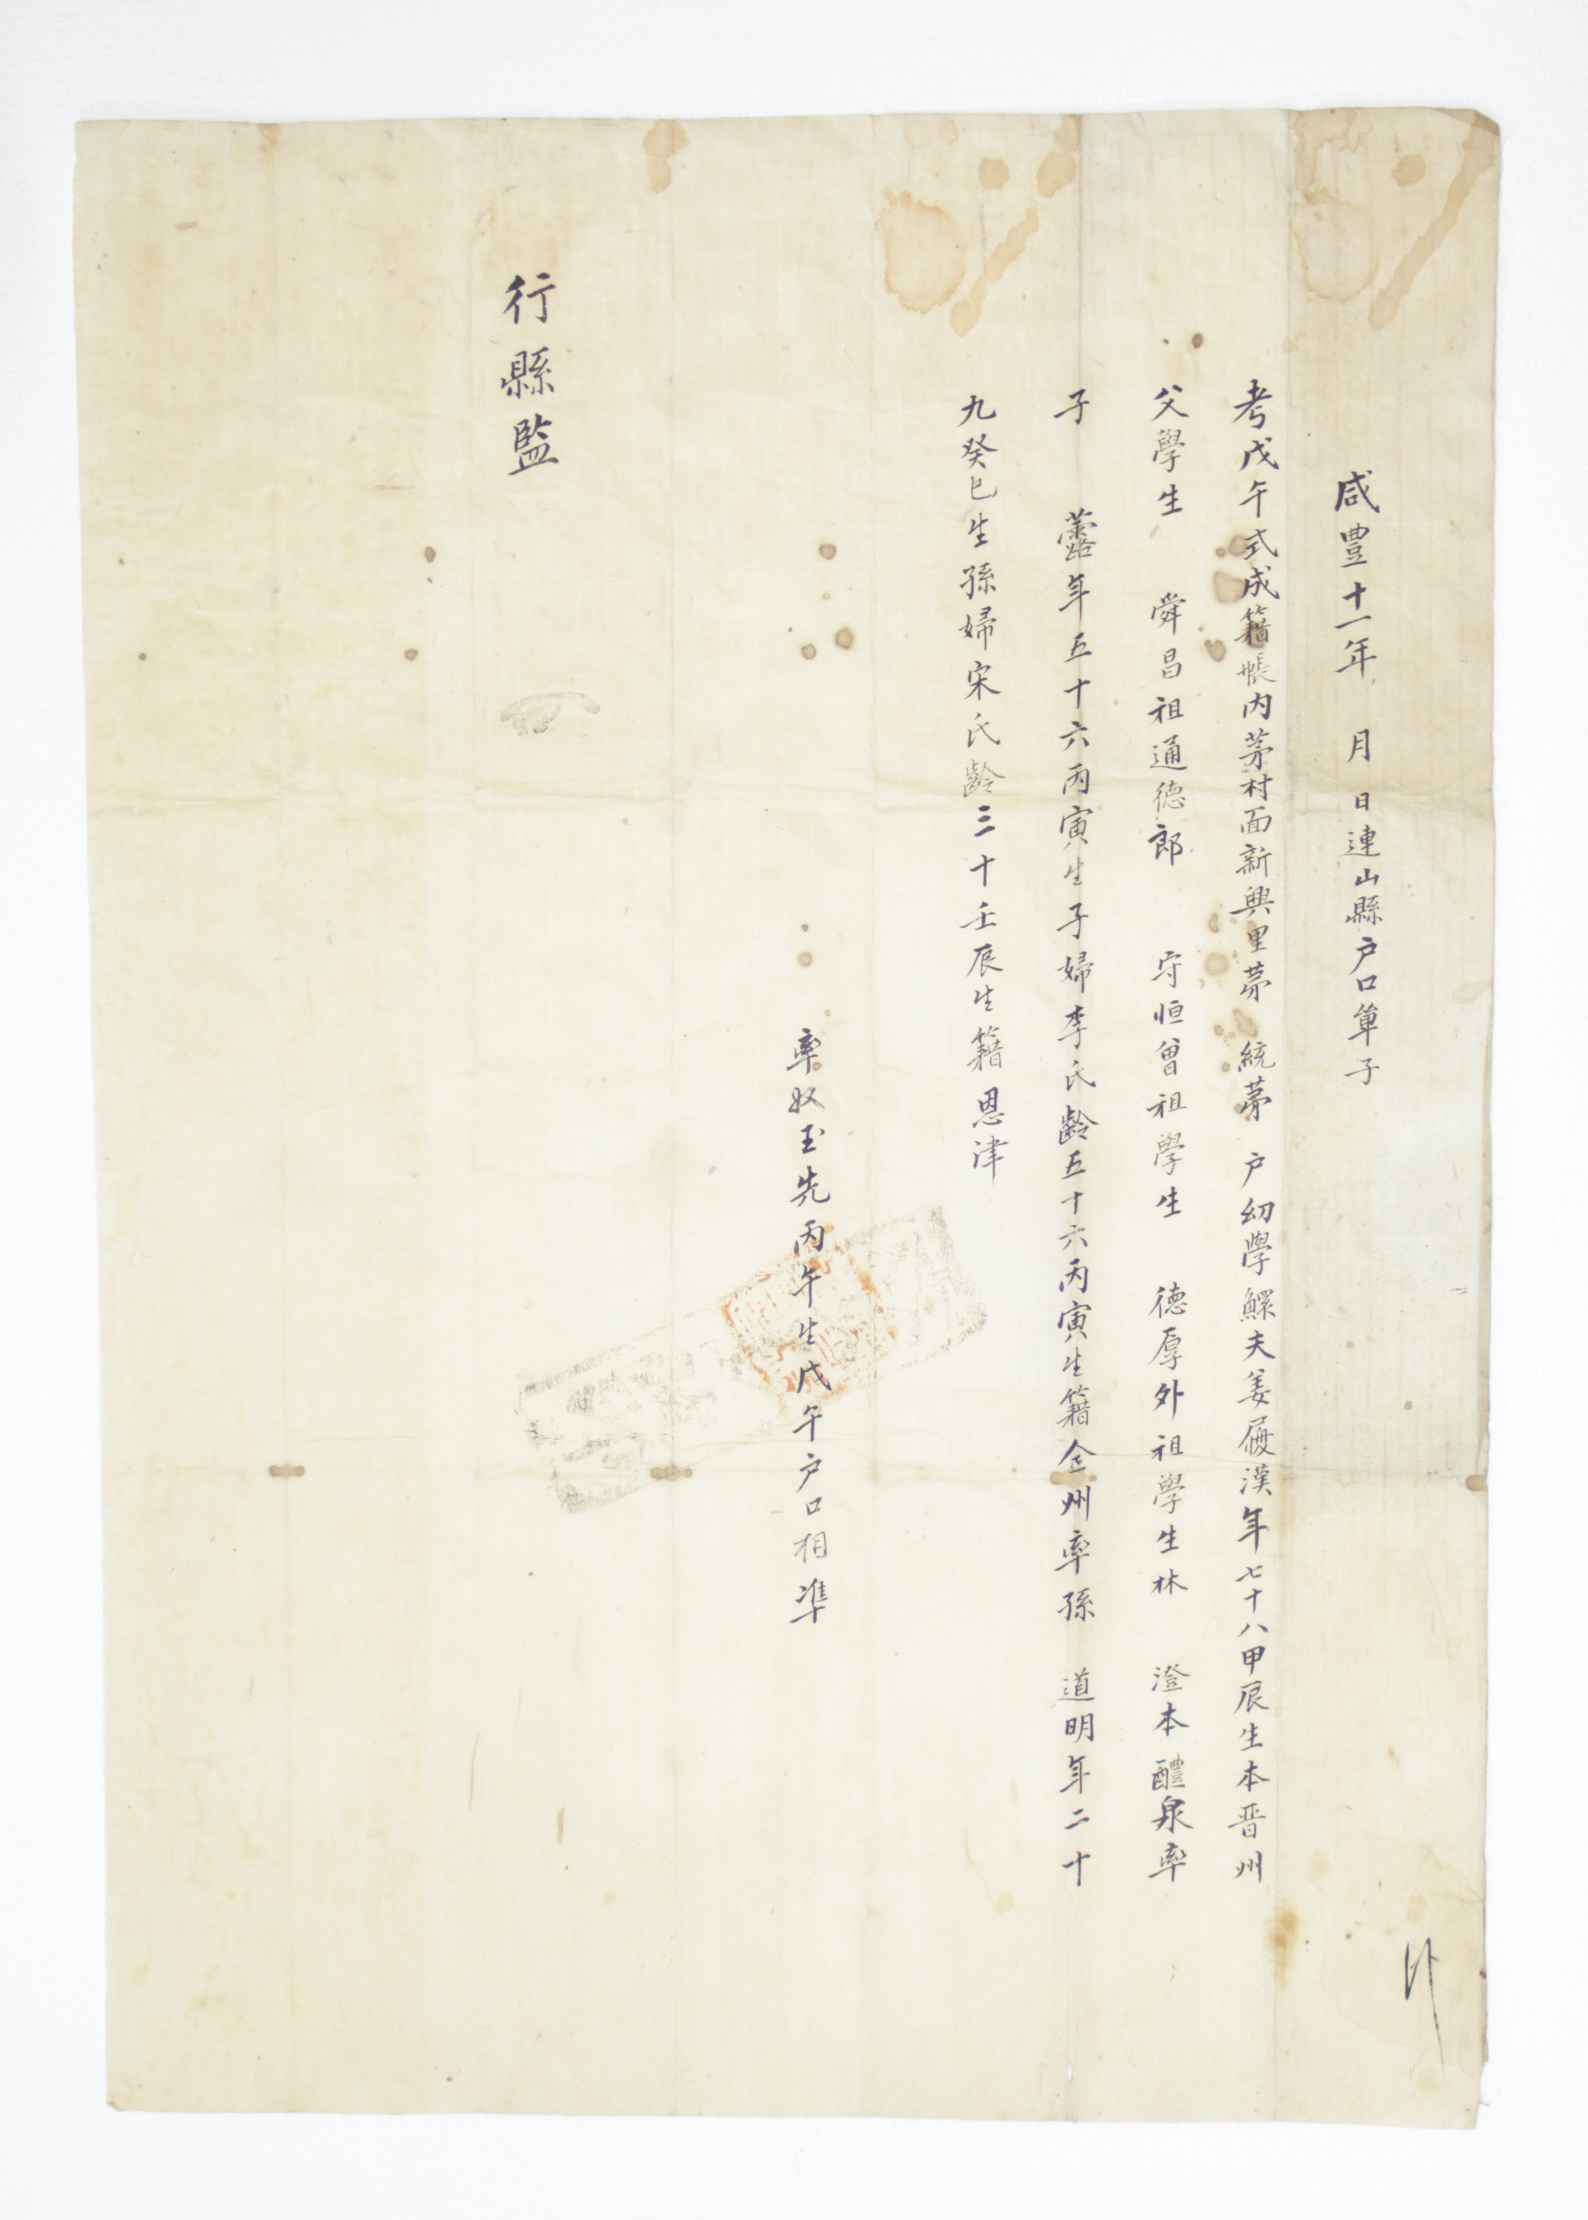 咸豊十一年 月 日連山縣户口单子
考戊午式成籍帳内茅村面新興里茅 統茅 户幼學鰥夫姜履漢年七十八甲辰生本晋州
父學生 舜昌祖通德郎 守恒曾祖學生 德厚外祖學生林 澄本醴泉率
子 年五十六丙寅生子婦李氏齡五十六丙寅生籍全州率孫 道明年二十
九癸巳生孫婦宋氏齡三十壬辰生籍恩津
率奴玉先丙午生戊午户口相凖
行縣監